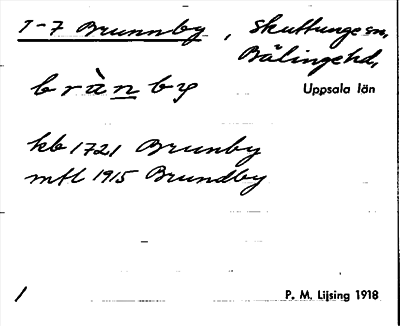 1-7 Brunnby, Skuttunge sn,
Bälinge hd,
brànby
Uppsala län
kb 1721 Brunby
mtl 1915 Brundby
/
P. M. Lijsing 1918